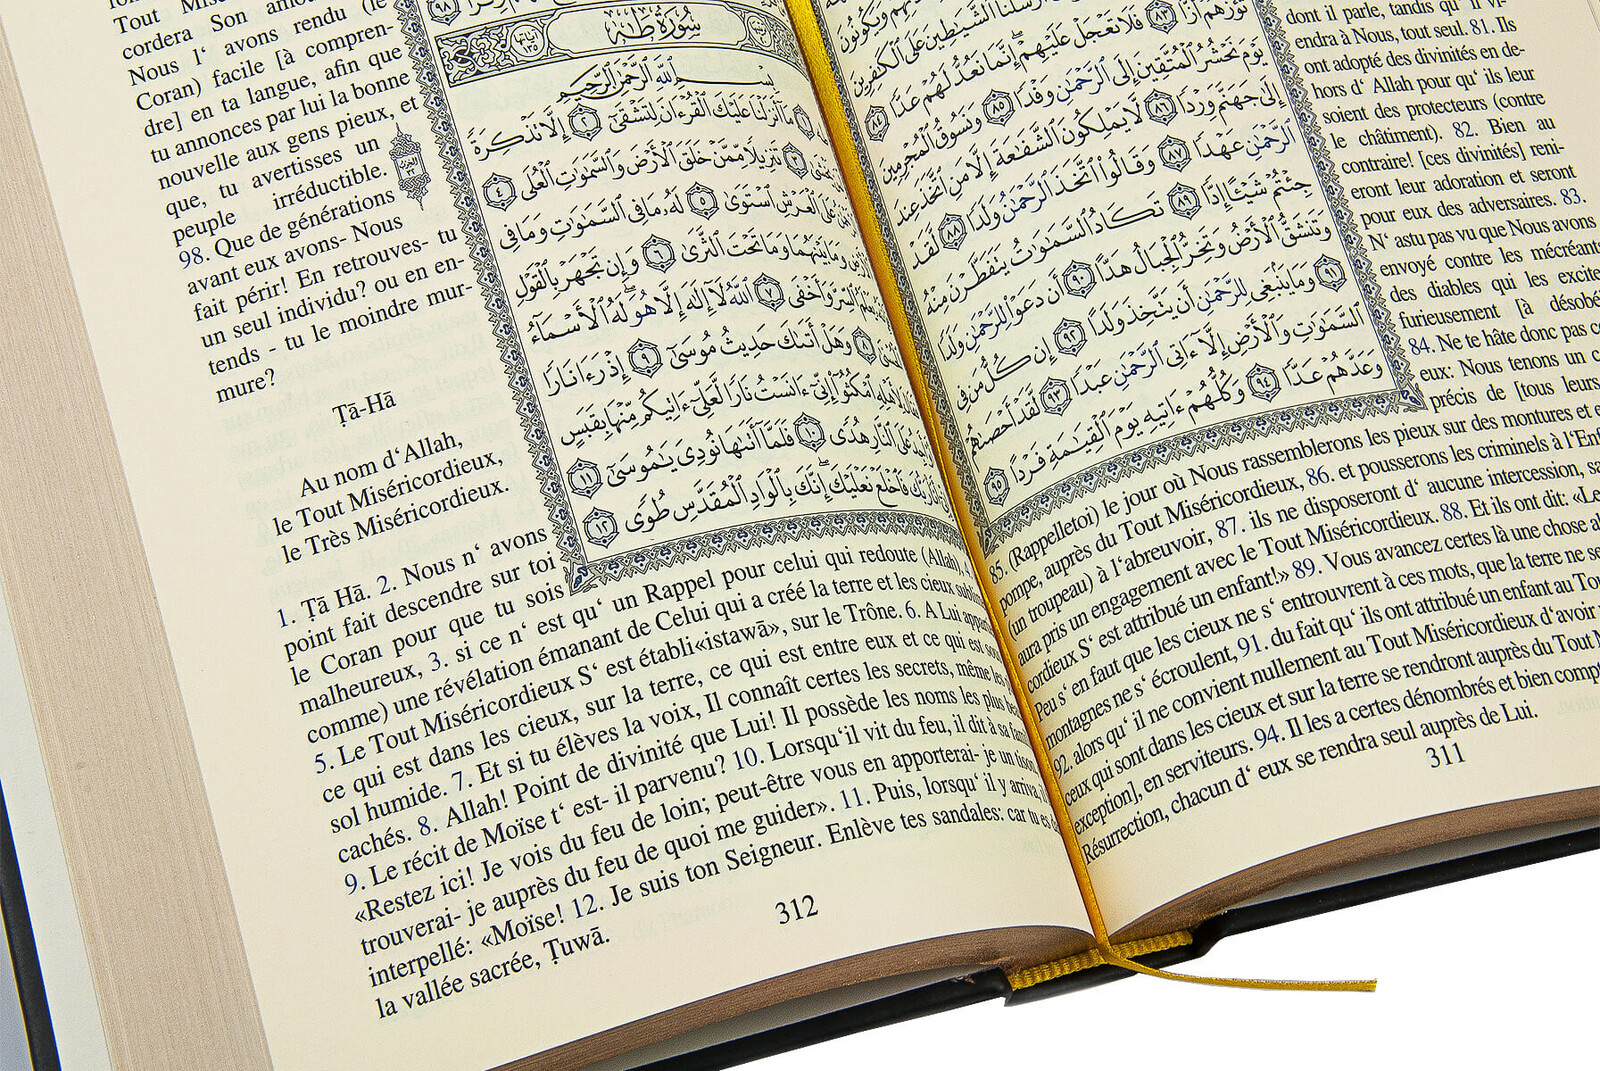 أَرْسَلْنَا الشَّيَٰطِينَ عَلَى الْكَٰفِرِينَ
تَؤُزُّهُمْ أَزًّا ٨٣ فَلَا تَعْجَلْ عَلَيْهِمْ إِنَّمَا نَعُدُّ لَهُمْ عَدًّا ٨٤
يَوْمَ نَحْشُرُ الْمُتَّقِينَ إِلَى الرَّحْمَٰنِ وَفْدًا ٨٥ وَنَسُوقُ الْمُجْرِمِينَ
إِلَىٰ جَهَنَّمَ وِرْدًا ٨٦ لَا يَمْلِكُونَ الشَّفَٰعَةَ إِلَّا مَنِ اتَّخَذَ عِندَ
الرَّحْمَٰنِ عَهْدًا ٨٧ وَقَالُوا اتَّخَذَ الرَّحْمَٰنُ وَلَدًا ٨٨ لَقَدْ
جِئْتُمْ شَيْئًا إِدًّا ٨٩ تَكَادُ السَّمَٰوَٰتُ يَتَفَطَّرْنَ مِنْهُ
وَتَنشَقُّ الْأَرْضُ وَتَخِرُّ الْجِبَالُ هَدًّا ٩٠ أَن دَعَوْا لِلرَّحْمَٰنِ وَلَدًا
٩١ وَمَا يَنبَغِي لِلرَّحْمَٰنِ أَن يَتَّخِذَ وَلَدًا ٩٢ إِن كُلُّ مَن فِي
السَّمَٰوَٰتِ وَالْأَرْضِ إِلَّا ءَاتِي الرَّحْمَٰنِ عَبْدًا ٩٣ لَّقَدْ أَحْصَىٰهُمْ
وَعَدَّهُمْ عَدًّا ٩٤ وَكُلُّهُمْ ءَاتِيهِ يَوْمَ الْقِيَٰمَةِ فَرْدًا ٩٥
dont il parle, tandis qu' il vi-
endra à Nous, tout seul. 81. Ils
ont adopté des divinités en de-
hors d' Allah pour qu' ils leur
soient des protecteurs (contre
le châtiment). 82. Bien au
contraire! [ces divinités] reni-
eront leur adoration et seront
pour eux des adversaires. 83.
N' astu pas vu que Nous avons
envoyé contre les mécréants
des diables qui les excite
furieusement [à désobé
84. Ne te hâte donc pas c
eux: Nous tenons un c
précis de [tous leurs
85. (Rappelletoi) le jour où Nous rassemblerons les pieux sur des montures et e
pompe, auprès du Tout Miséricordieux, 86. et pousserons les criminels à l'Enf
(un troupeau) à l'abreuvoir, 87. ils ne disposeront d' aucune intercession, sa
aura pris un engagement avec le Tout Miséricordieux. 88. Et ils ont dit: «Le
cordieux S' est attribué un enfant!» 89. Vous avancez certes là une chose al
Peu s' en faut que les cieux ne s' entrouvrent à ces mots, que la terre ne se
montagnes ne s' écroulent, 91. du fait qu' ils ont attribué un enfant au Tou
92. alors qu' il ne convient nullement au Tout Miséricordieux d'avoir
ceux qui sont dans les cieux et sur la terre se rendront auprès du Tout M
exception], en serviteurs. 94. Il les a certes dénombrés et bien compt
Résurrection, chacun d' eux se rendra seul auprès de Lui.
311
Tout
cordera Son
Nous l' avons rendu (le
Coran) facile [à compren-
dre] en ta langue, afin que
tu annonces par lui la bonne
nouvelle aux gens pieux, et
que, tu avertisses un
peuple irréductible.
98. Que de générations
avant eux avons- Nous
fait périr! En retrouves- tu
un seul individu? ou en en-
tends - tu le moindre mur-
mure?
Ṭā-Hā
Au nom d'Allah,
le Tout Miséricordieux,
le Très Miséricordieux.
سُورَةُ طه
بِسْمِ اللَّهِ الرَّحْمَٰنِ الرَّحِيمِ
١ مَا أَنزَلْنَا عَلَيْكَ الْقُرْءَانَ لِتَشْقَىٰ ٢ إِلَّا تَذْكِرَةً
٣ تَنزِيلًا مِّمَّنْ خَلَقَ الْأَرْضَ وَالسَّمَٰوَٰتِ الْعُلَى ٤
عَلَى الْعَرْشِ اسْتَوَىٰ ٥ لَهُ مَا فِي السَّمَٰوَٰتِ وَمَا فِي
وَمَا بَيْنَهُمَا وَمَا تَحْتَ الثَّرَىٰ ٦ وَإِن تَجْهَرْ بِالْقَوْلِ
السِّرَّ وَأَخْفَى ٧ اللَّهُ لَا إِلَٰهَ إِلَّا هُوَ لَهُ الْأَسْمَاءُ
٨ وَهَلْ أَتَىٰكَ حَدِيثُ مُوسَىٰ ٩ إِذْ رَءَا نَارًا
امْكُثُوا إِنِّي ءَانَسْتُ نَارًا لَّعَلِّي ءَاتِيكُم مِّنْهَا بِقَبَسٍ
عَلَى النَّارِ هُدًى ١٠ فَلَمَّا أَتَىٰهَا نُودِيَ يَٰمُوسَىٰ ١١
فَاخْلَعْ نَعْلَيْكَ إِنَّكَ بِالْوَادِ الْمُقَدَّسِ طُوًى ١٢
1. Ṭā Hā. 2. Nous n' avons
point fait descendre sur toi
le Coran pour que tu sois
malheureux, 3. si ce n' est qu' un Rappel pour celui qui redoute (Allah),
comme) une révélation émanant de Celui qui a créé la terre et les cieux
5. Le Tout Miséricordieux S' est établi«istawā», sur le Trône. 6. A Lui
ce qui est dans les cieux, sur la terre, ce qui est entre eux et ce qui est
sol humide. 7. Et si tu élèves la voix, Il connaît certes les secrets, même les
cachés. 8. Allah! Point de divinité que Lui! Il possède les noms les plus
9. Le récit de Moïse t' est- il parvenu? 10. Lorsqu'il vit du feu, il dit à sa
«Restez ici! Je vois du feu de loin; peut-être vous en apporterai- je un
trouverai- je auprès du feu de quoi me guider». 11. Puis, lorsqu' il y arriva,
interpellé: «Moïse! 12. Je suis ton Seigneur. Enlève tes sandales: car tu es
la vallée sacrée, Ṭuwā.
312